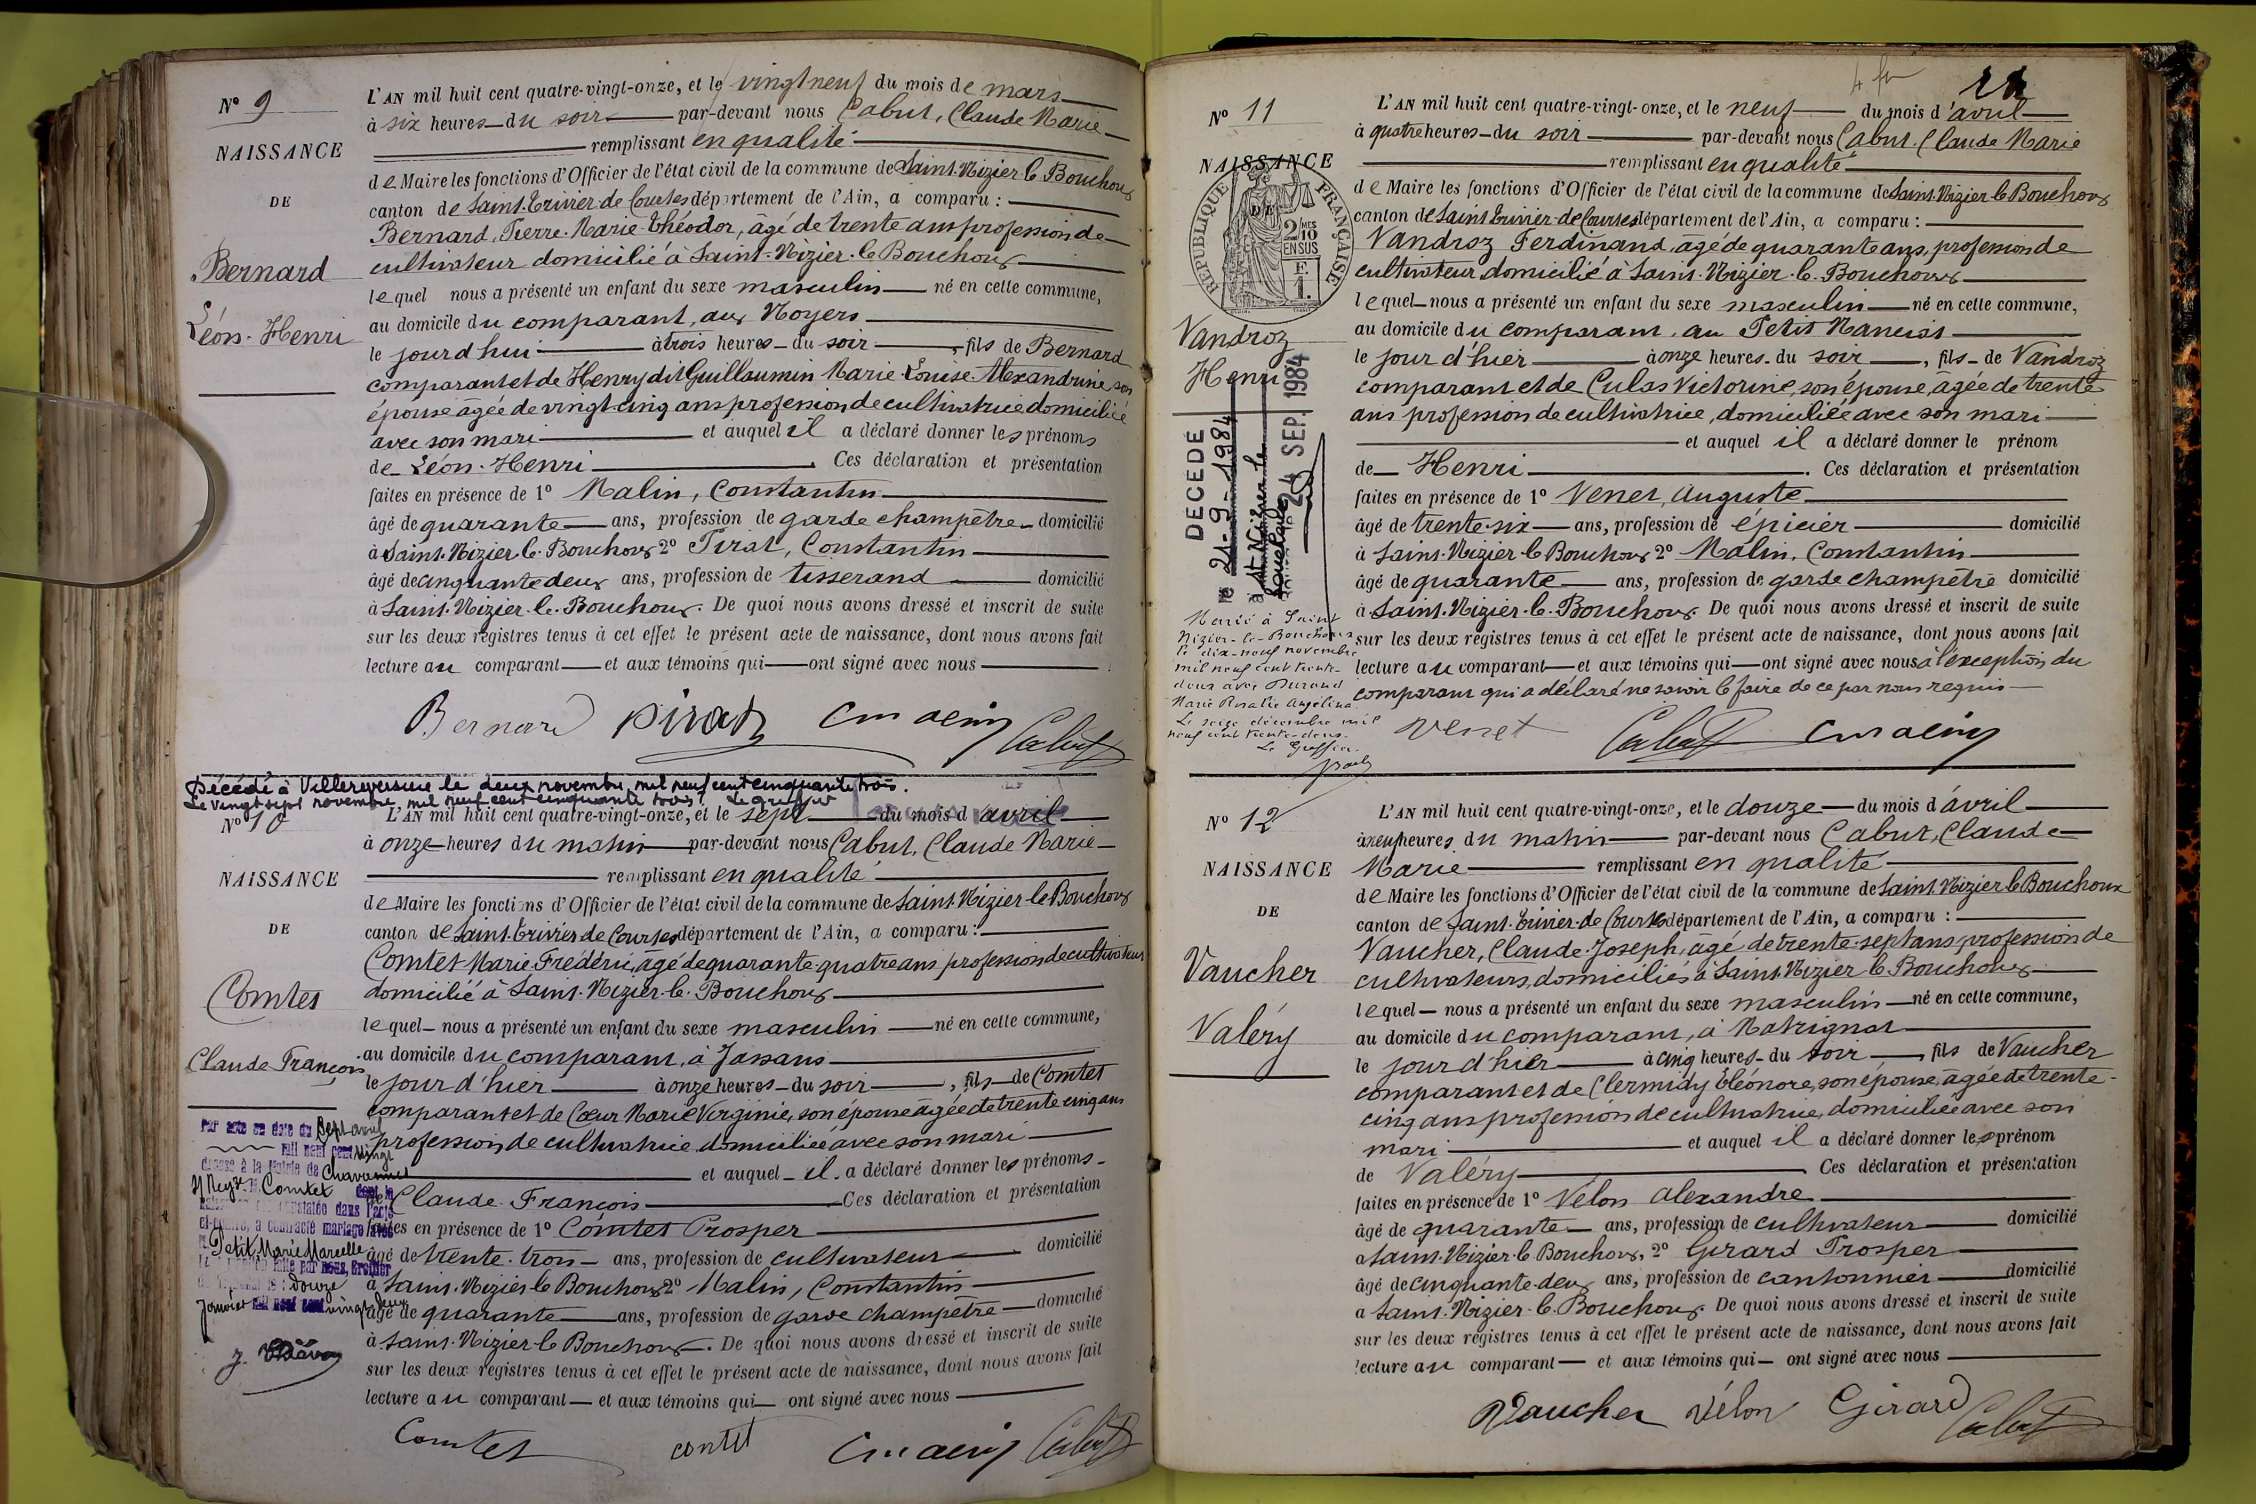 N° 9
NAISSANCE
DE
Bernard
Léon-Henri
L'AN mil huit cent quatre-vingt-onze, et le vingt neuf du mois de mars
à six heures du soir par-devant nous Cabut, Claude Marie
remplissant en qualité
de Maire les fonctions d'Officier de l'état civil de la commune de Saint-Nizier-le-Bouchoux
canton de Saint-Trivier-de-Courtes département de l'Ain, a comparu :
Bernard, Pierre-Marie-Théodor, âgé de trente ans profession de
cultivateur domicilié à Saint-Nizier-le-Bouchoux
lequel nous a présenté un enfant du sexe masculin né en cette commune,
au domicile du comparant, aux Noyers
le jourd'hui à trois heures du soir, fils de Bernard
comparant et de Henry dit Guillaumin Marie-Louise-Alexandrine son
épouse âgée de vingt-cinq ans profession de cultivatrice domiciliée
avec son mari et auquel il a déclaré donner les prénoms
de Léon-Henri. Ces déclaration et présentation
faites en présence de 1° Malin, Constantin
âgé de quarante ans, profession de garde champêtre domicilié
à Saint-Nizier-le-Bouchoux 2° Pirat, Constantin
âgé de cinquante deux ans, profession de tisserand domicilié
à Saint-Nizier-le-Bouchoux. De quoi nous avons dressé et inscrit de suite
sur les deux registres tenus à cet effet le présent acte de naissance, dont nous avons fait
lecture au comparant et aux témoins qui ont signé avec nous
Bernard Pirat C Malin Cabut
Décédé à Villereversure le deux novembre mil neuf cent cinquante trois.
Le vingt sept novembre mil neuf cent cinquante trois. Le greffier
N° 10
NAISSANCE
DE
Comtet
Claude François
Par acte en date du sept avril
mil neuf cent vingt
dressé à la mairie de Chavannes
s/ Reyss. Comtet dont la
naissance est constatée dans l'acte
ci-contre, a contracté mariage avec
Petit Marie Marcelle
par nous, Greffier
douze
Janvier mil neuf cent vingt deux
L'AN mil huit cent quatre-vingt-onze, et le sept du mois d'avril
à onze heures du matin par-devant nous Cabut, Claude Marie
remplissant en qualité
de Maire les fonctions d'Officier de l'état civil de la commune de Saint-Nizier-le-Bouchoux
canton de Saint-Trivier de Courtes département de l'Ain, a comparu :
Comtet Marie Frédéric, âgé de quarante-quatre ans profession de cultivateur
domicilié à Saint-Nizier-le-Bouchoux
lequel nous a présenté un enfant du sexe masculin né en cette commune,
au domicile du comparant, à Jassans
le jour d'hier à onze heures du soir, fils de Comtet
comparant et de Cœur Marie Virginie, son épouse âgée de trente cinq ans
profession de cultivatrice domiciliée avec son mari
et auquel il a déclaré donner les prénoms
de Claude François Ces déclaration et présentation
faites en présence de 1° Comtet Prosper
âgé de trente-trois ans, profession de cultivateur domicilié
à Saint-Nizier-le-Bouchoux 2° Malin, Constantin
âgé de quarante ans, profession de garde champêtre domicilié
à Saint-Nizier-le-Bouchoux. De quoi nous avons dressé et inscrit de suite
sur les deux registres tenus à cet effet le présent acte de naissance, dont nous avons fait
lecture au comparant et aux témoins qui ont signé avec nous
Comtet comtet C Malin Cabut
N° 11
NAISSANCE
DE
RÉPUBLIQUE FRANÇAISE
2/10 MES
EN SUS
Vandroz
Henri
DECEDE
le 21-9-1984
à St Nizier le
Bouchoux
24 SEP. 1984
Marié à Saint
Nizier-le-Bouchoux
le dix-neuf novembre
mil neuf cent trente-
deux avec Durand
Marie Rosalie Angelina
Le seize décembre mil
neuf cent trente-deux.
Le Greffier.
L'AN mil huit cent quatre-vingt-onze, et le neuf du mois d'avril
à quatre heures du soir par-devant nous Cabut, Claude Marie
remplissant en qualité
de Maire les fonctions d'Officier de l'état civil de la commune de Saint-Nizier-le-Bouchoux
canton de Saint-Trivier-de-Courtes département de l'Ain, a comparu :
Vandroz Ferdinand, âgé de quarante ans, profession de
cultivateur domicilié à Saint-Nizier-le-Bouchoux
lequel nous a présenté un enfant du sexe masculin né en cette commune,
au domicile du comparant, au Petit
le jour d'hier à onze heures du soir, fils de Vandroz
comparant et de Culas Victorine, son épouse, âgée de trente
ans profession de cultivatrice, domiciliée avec son mari
et auquel il a déclaré donner le prénom
de Henri. Ces déclaration et présentation
faites en présence de 1° Venet, Auguste
âgé de trente-six ans, profession de épicier domicilié
à Saint-Nizier-le-Bouchoux 2° Malin, Constantin
âgé de quarante ans, profession de garde champêtre domicilié
à Saint-Nizier-le-Bouchoux. De quoi nous avons dressé et inscrit de suite
sur les deux registres tenus à cet effet le présent acte de naissance, dont nous avons fait
lecture au comparant et aux témoins qui ont signé avec nous à l'exception du
comparant qui a déclaré ne savoir le faire de ce par nous requis
Venet Cabut C Malin
N° 12
NAISSANCE
DE
Vaucher
Valéry
L'AN mil huit cent quatre-vingt-onze, et le douze du mois d'avril
à neuf heures du matin par-devant nous Cabut, Claude
Marie remplissant en qualité
de Maire les fonctions d'Officier de l'état civil de la commune de Saint-Nizier-le-Bouchoux
canton de Saint-Trivier-de-Courtes département de l'Ain, a comparu :
Vaucher, Claude-Joseph, âgé de trente-sept ans profession de
cultivateurs, domiciliés à Saint-Nizier le Bouchoux
lequel nous a présenté un enfant du sexe masculin né en cette commune,
au domicile du comparant, à Matrignat
le jour d'hier à cinq heures du soir, fils de Vaucher
comparant et de Clermidy Eléonore, son épouse, âgée de trente-
cinq ans profession de cultivatrice, domiciliée avec son
mari et auquel il a déclaré donner les prénom
de Valéry Ces déclaration et présentation
faites en présence de 1° Vélon Alexandre
âgé de quarante ans, profession de cultivateur domicilié
à Saint-Nizier-le-Bouchoux, 2° Girard Prosper
âgé de cinquante-deux ans, profession de cantonnier domicilié
à Saint-Nizier-le-Bouchoux. De quoi nous avons dressé et inscrit de suite
sur les deux registres tenus à cet effet le présent acte de naissance, dont nous avons fait
lecture au comparant et aux témoins qui ont signé avec nous
Vaucher Vélon Girard Cabut